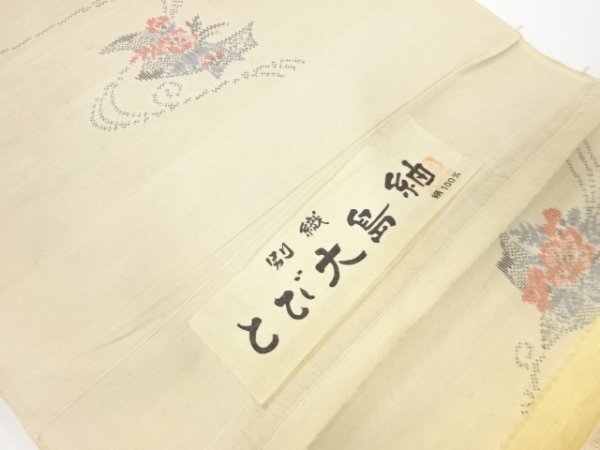 別織
とでじ大島紬
絹100%